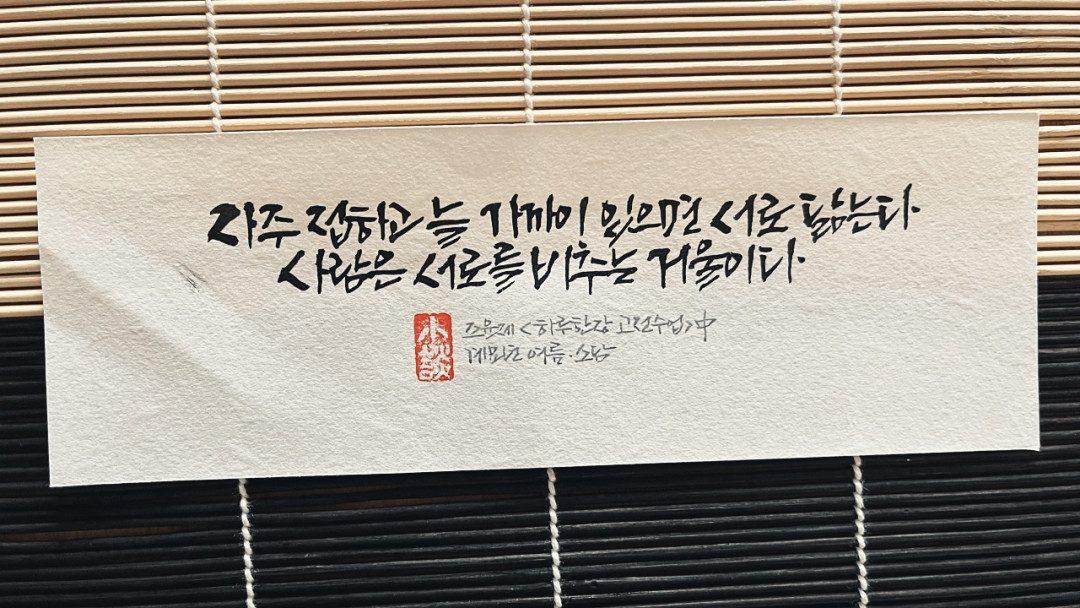 자주 접하고 늘 가까이 있으면 서로 닮는다.
사람은 서로를 비추는 거울이다.
조윤제 <하루 한 장 고전수업> 中
계묘년 여름. 소담
小談